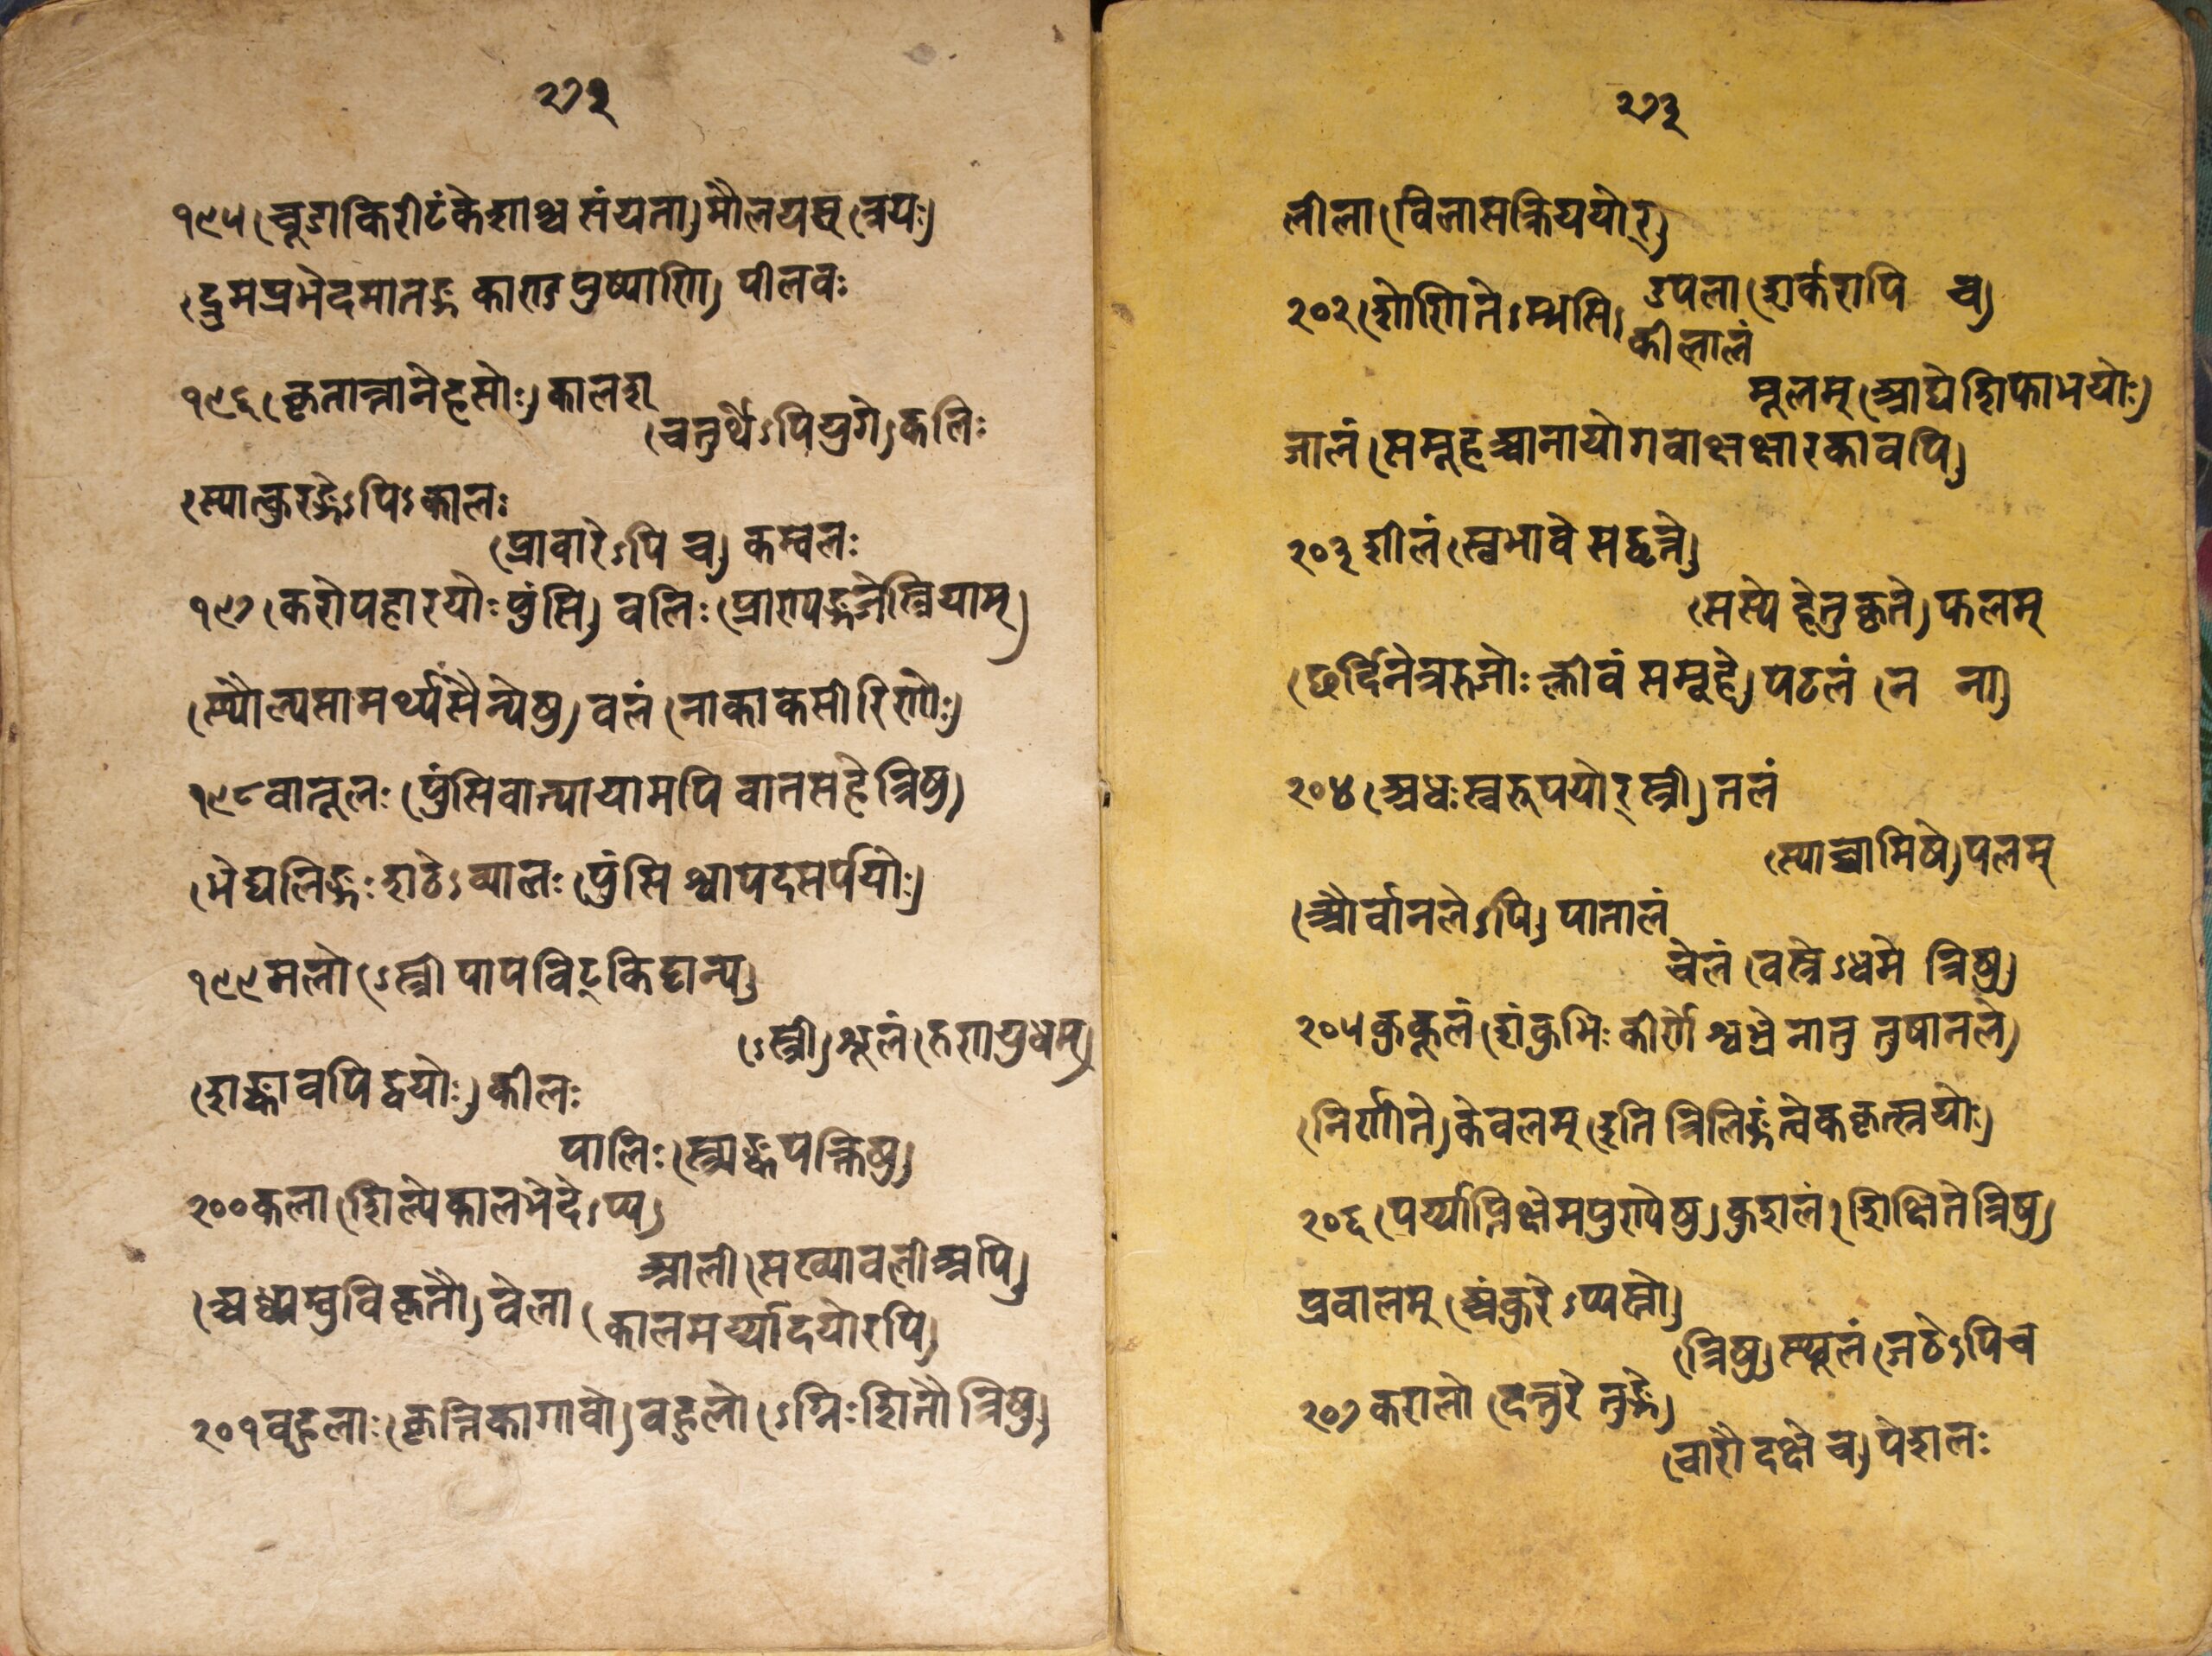 २७२
१९५ (चूडा किरीटं केशाश्च संयता) मौलयस् त्रयः)
(द्रुमप्रभेदमातङ्ग काण्ड पुष्पाणि) पीलवः
१९६ (कृतान्तानेहसोः) कालश्
(चतुर्थेऽपियुगे) कलिः
(स्यात्कुरङ्गेऽपि) कमलः
(प्रावारेऽपि च) कम्वलः
१९७ (करोपहारयोः पुंसि) वलिः (प्राण्यङ्गजेस्त्रियाम्)
(स्थौल्यसामर्थ्यसैन्येषु) वलं (नाकाकसीरिणोः)
१९८ वातूलः (पुंसिवात्यायामपि वातसहेत्रिषु)
(भेद्यलिङ्गः शठे) व्यालः (पुंसि श्वापदसर्पयोः)
१९९ मलो (ऽस्त्री पापविट्किट्टान्य)
(ऽस्त्री) शूलं (रुगायुधम्)
(शङ्कावपिद्वयोः) कीलः
पालिः (स्त्र्यश्र्यङ्कपङ्क्तिषु)
२०० कला (शिल्पे कालभेदेऽप्य)
आली (सख्यावलीअपि)
(अब्ध्यम्वुविकृतौ) वेला (कालमर्य्यादयोरपि)
२०१ वहुलाः (कृत्तिकागावो) वहुलो (ऽग्निःशितौ त्रिषु)
२७३
लीला (विलासक्रिययोर्)
उपला (शर्करापि च)
२०२ (शोणितेऽम्भसि) कीलालं
मूलम् (आद्ये शिफाभयोः)
जालं (समूहआनायोगवाक्षक्षारकावपि)
२०३ शीलं (स्वभावे सद्वृत्ते)
(सस्ये हेतुकृते) फलम्
(छर्दिनेत्ररुजोः क्लीवं समूहे) पटलं (न ना)
२०४ (अधःस्वरूपयोर् स्त्री) तलं
(स्याच्चामिषे) पलम्
(और्वानलेऽपि) पातालं
चेलं (वस्त्रेऽधमे त्रिषु)
२०५ कुकूलं (शंकुभिः कीर्णे श्वभ्रे नातु तुषानले)
(निर्णीते) केवलम् (इति त्रिलिङ्गं त्वेककृत्स्नयोः)
२०६ (पर्य्याप्तिक्षेमपुण्येषु) कुशलं (शिक्षितेत्रिषु)
प्रवालम् (अंकुरेऽप्यस्त्री)
(त्रिषु) स्थूलं (जडेऽपिच
२०७ करालो (दन्तुरे तुङ्गे)
(चारौ दक्षे च) पेशलः